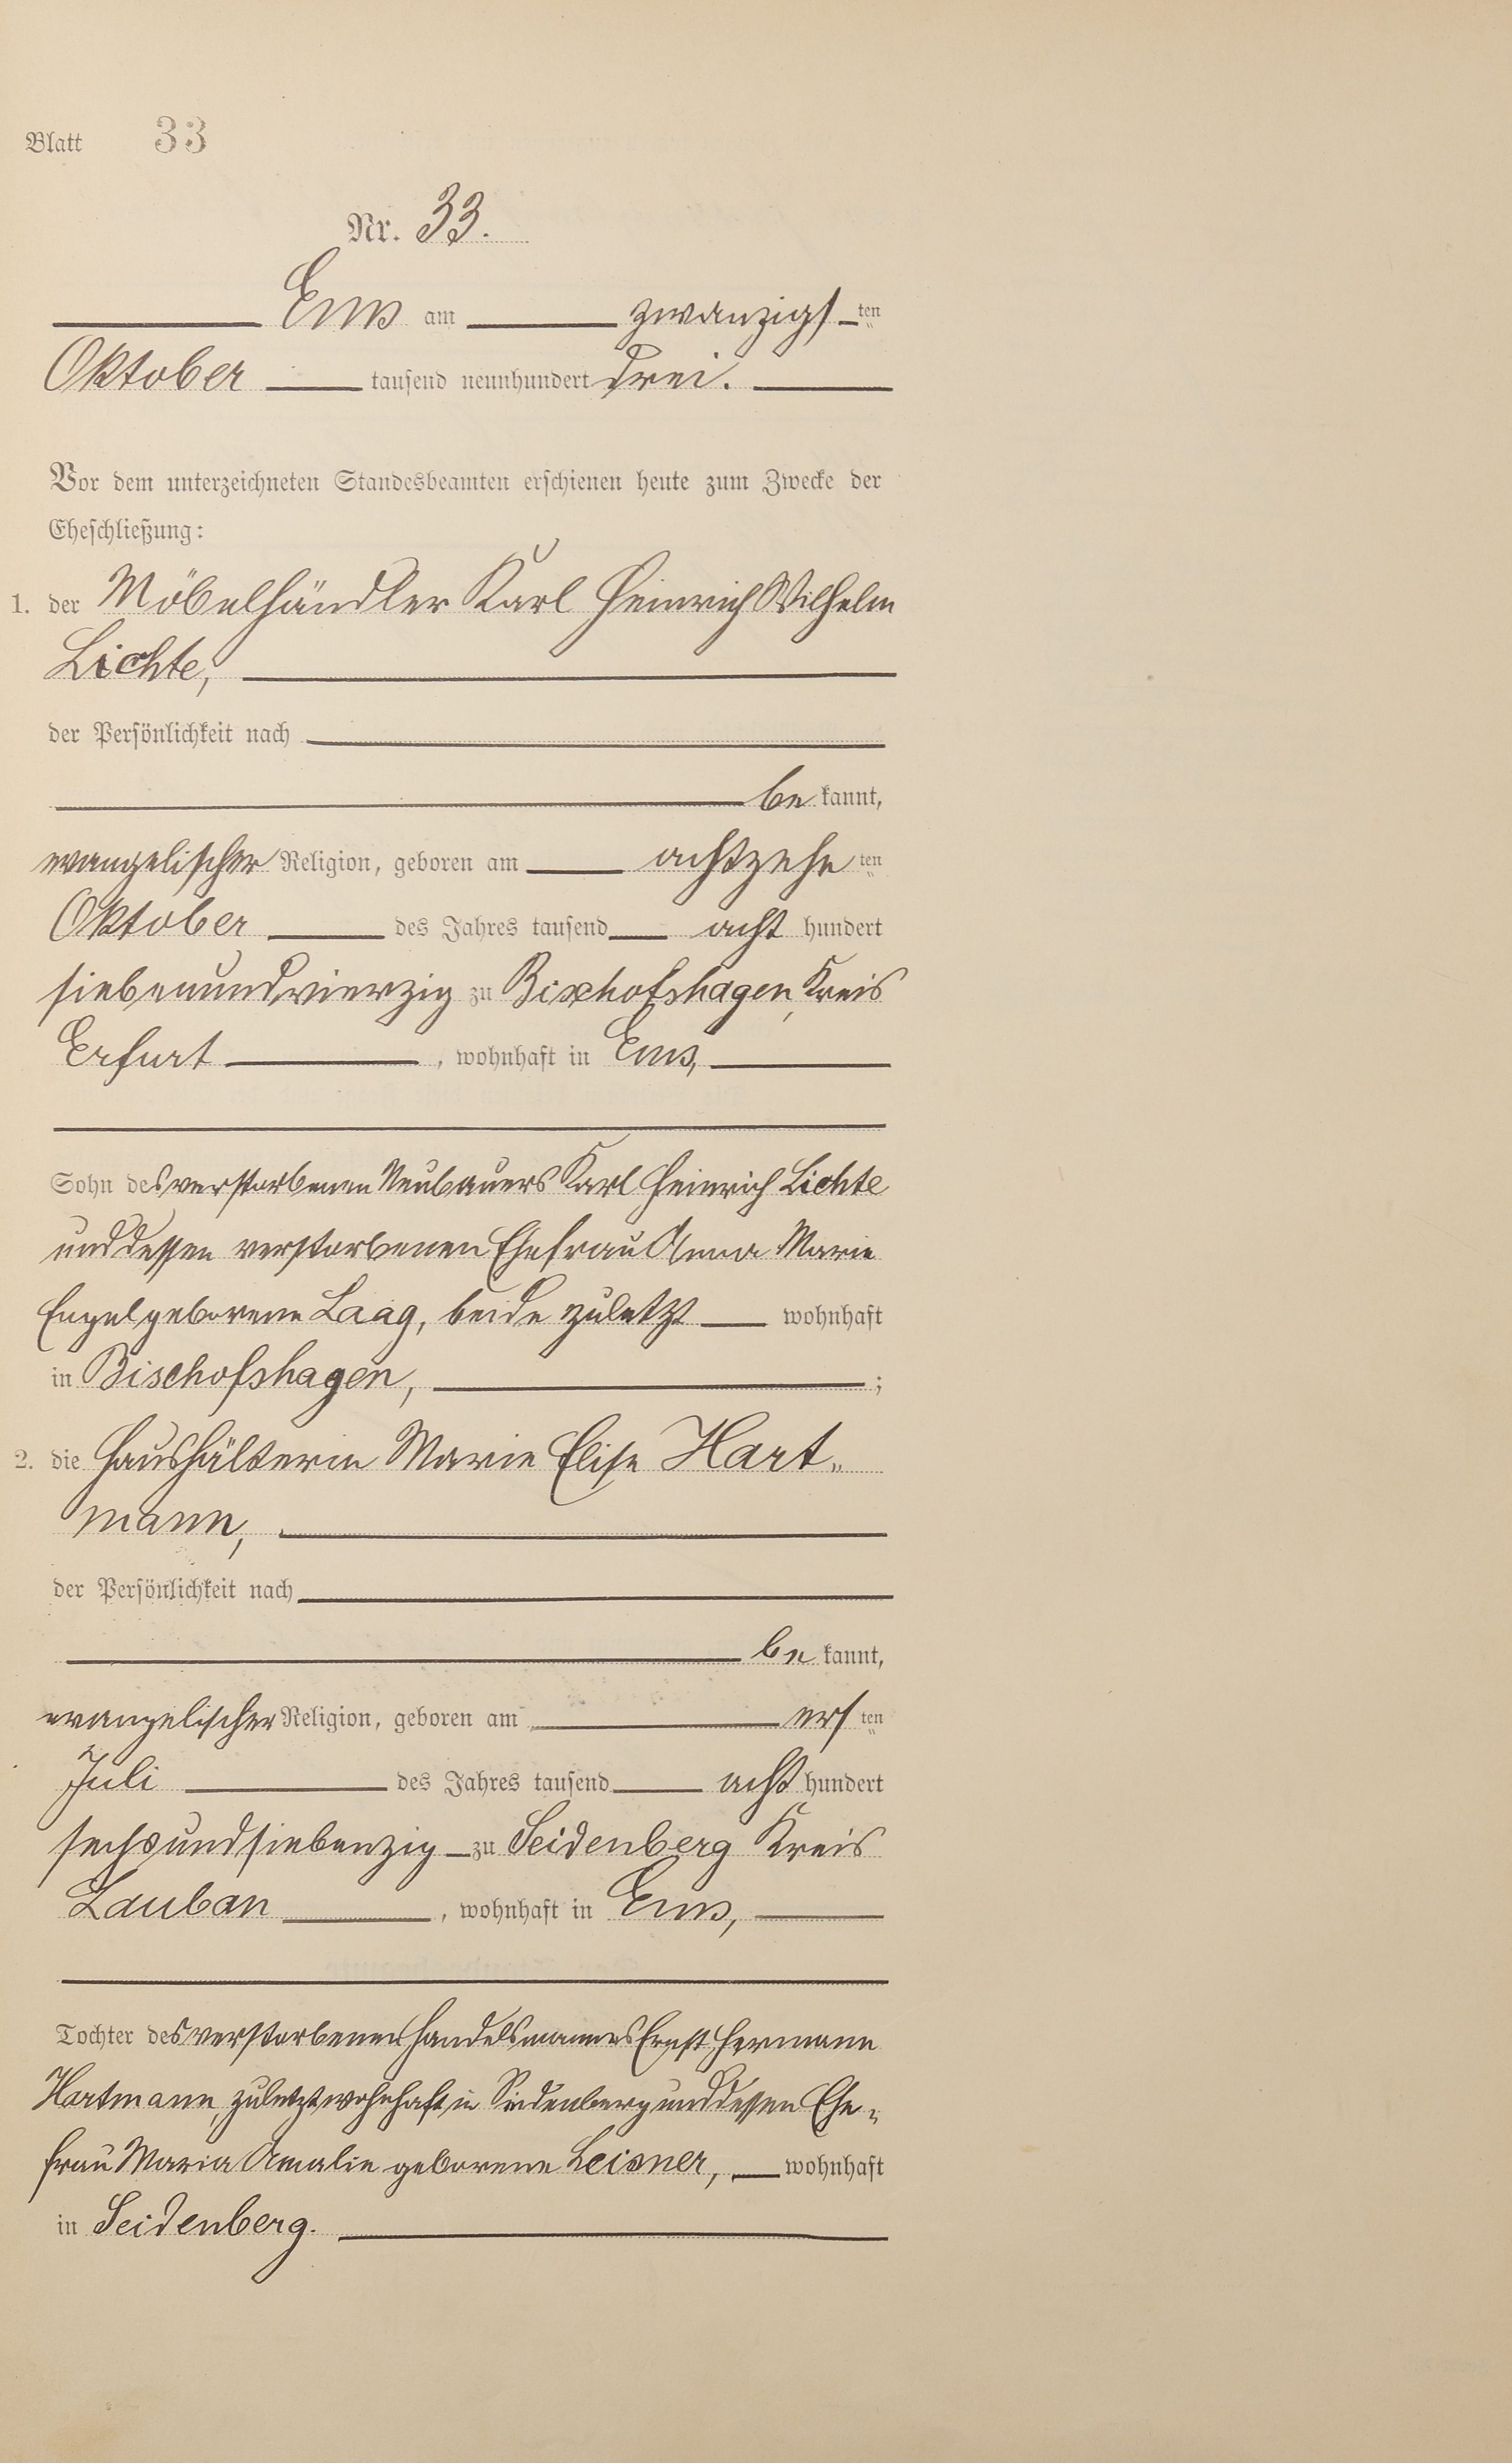 Blatt 33
Nr. 33.
Ems am zwanzigsten
Oktober tausend neunhundert drei.
Vor dem unterzeichneten Standesbeamten erschienen heute zum Zwecke der
Eheschließung:
1. der Möbelhändler Karl Heinrich Wilhelm
Lichte,
der Persönlichkeit nach
bekannt,
evangelischer Religion, geboren am achtzehnten
Oktober des Jahres tausend acht hundert
siebenundvierzig zu Bischofshagen, Kreis
Erfurt, wohnhaft in Ems,
Sohn des verstorbenen Neubauers Karl Heinrich Lichte
und dessen verstorbenen Ehefrau Anna Marie
Engel geborene Laag, beide zuletzt wohnhaft
in Bischofshagen, ;
2. die Haushälterin Marie Elise Hart-
mann,
der Persönlichkeit nach
bekannt,
evangelischer Religion, geboren am ersten
Juli des Jahres tausend acht hundert
sechsundsiebenzig zu Seidenberg Kreis
Lauban, wohnhaft in Ems,
Tochter des verstorbenen Handelsmannes Ernst Hermann
Hartmann, zuletzt wohnhaft in Seidenberg und dessen Ehe-
frau Maria Amalie geborene Leisner, wohnhaft
in Seidenberg.